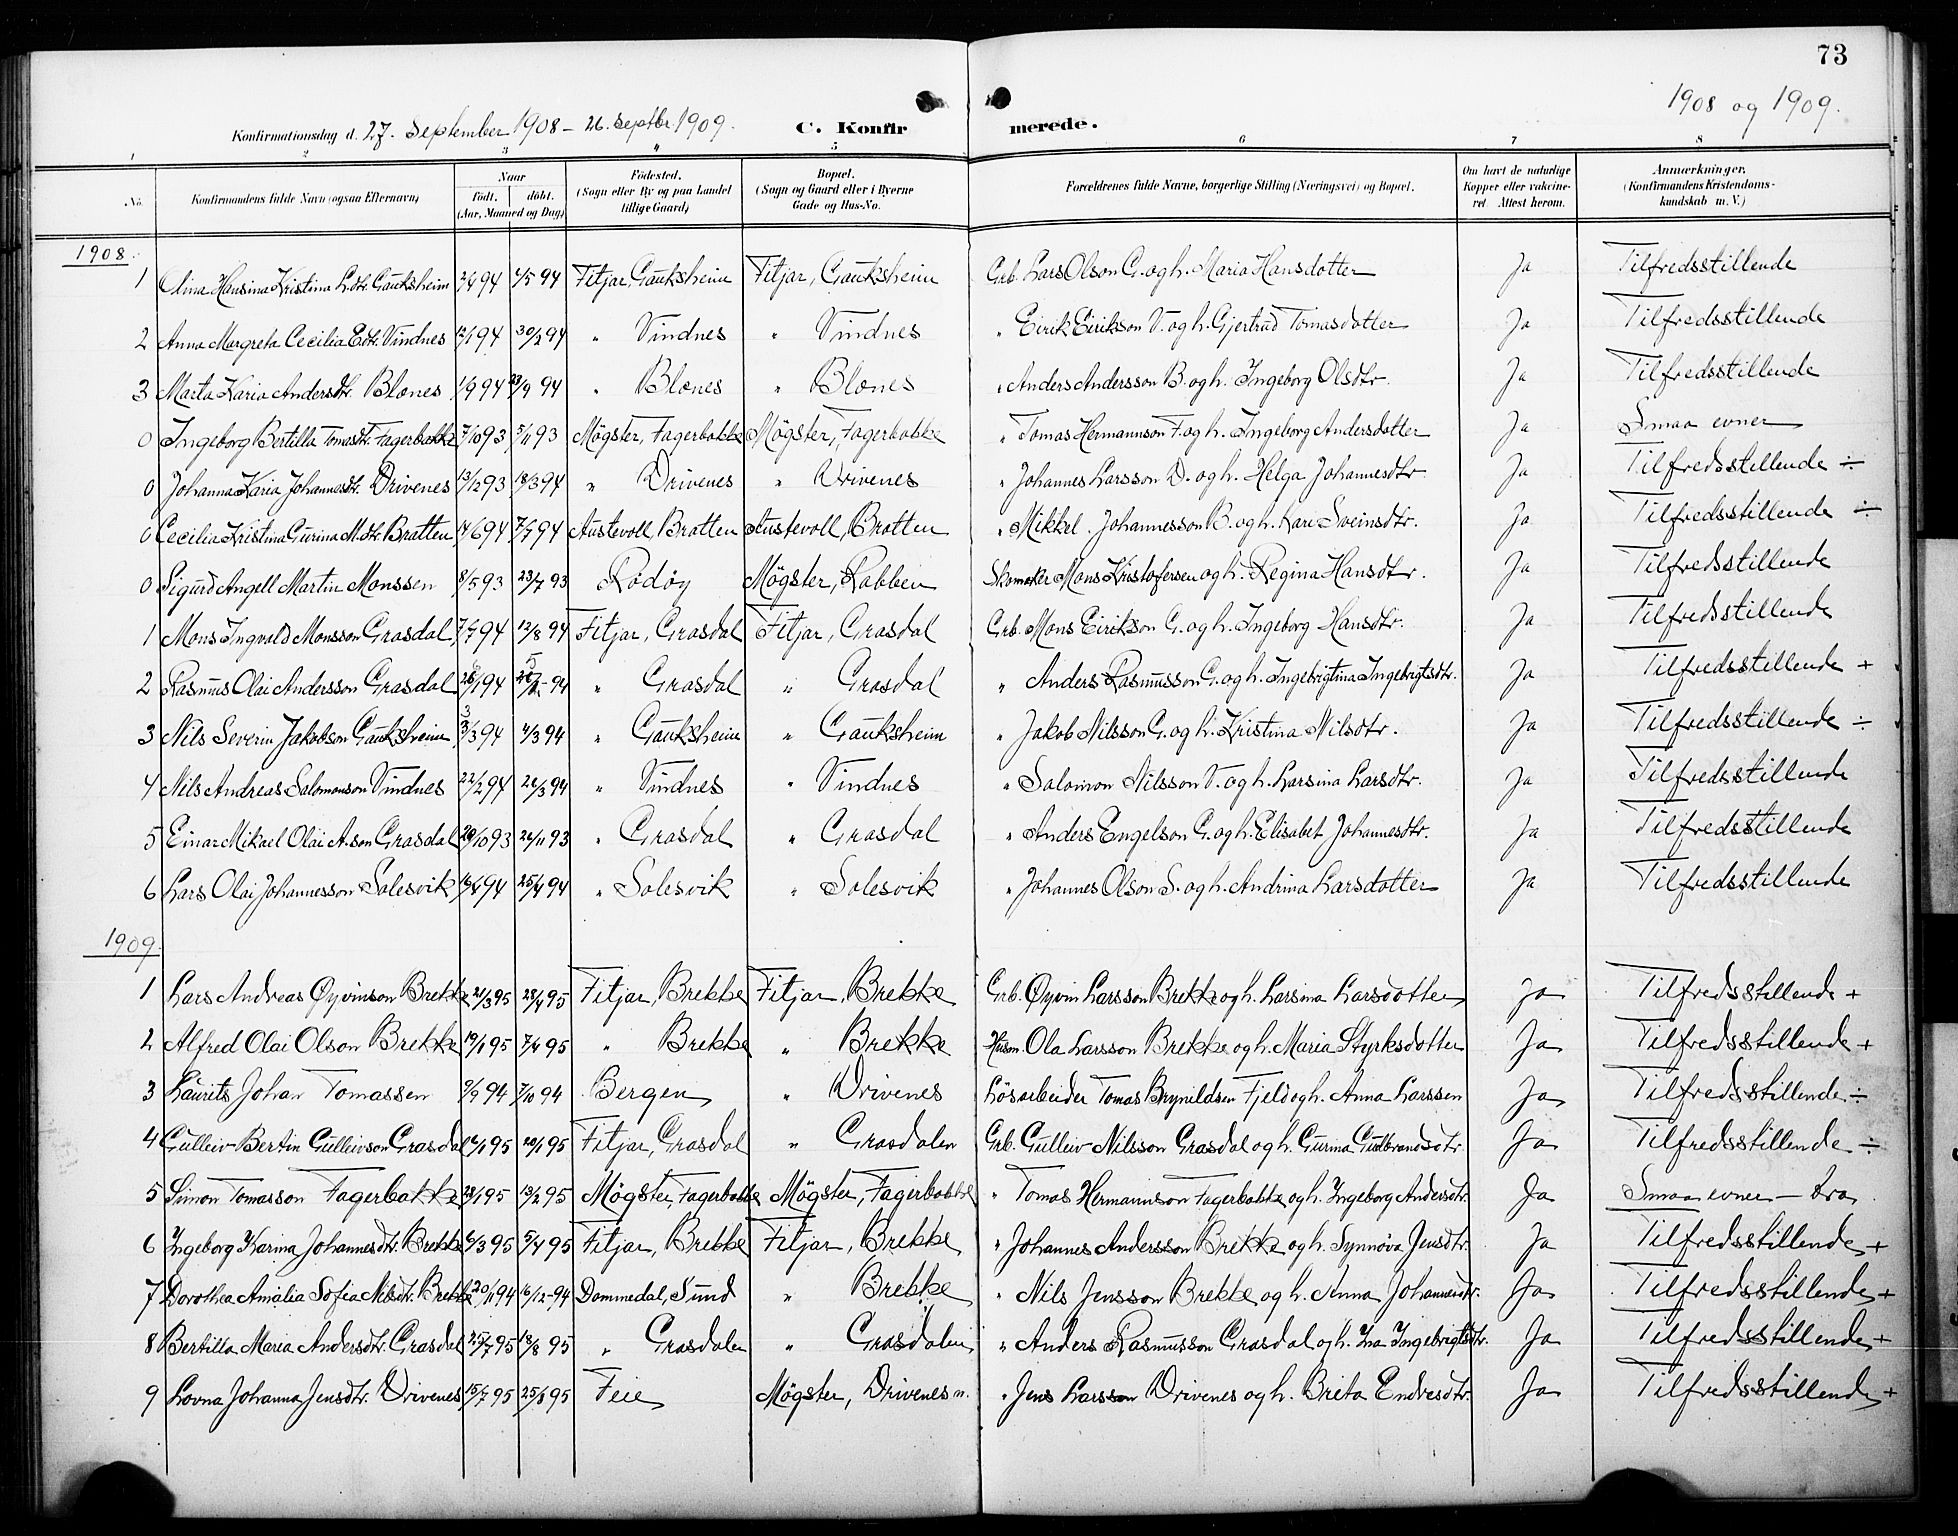 73
1908 og 1909.
Konfirmationsdag d. 27. September 1908 – 26. Septbr. 1909.
C. Konfirmerede.
1 2 3 4 5 6 7 8
No. Konfirmandens fulde Navn (ogsaa Efternavn) Naar født. døbt. (Aar, Maaned og Dag) Fødested. (Sogn eller By og paa Landet tillige Gaard) Bopæl. (Sogn og Gaard eller i Byerne Gade og Hus-No. Forældrenes fulde Navne, borgerlige Stilling (Næringsvei) og Bopæl. Om havt de naturlige Kopper eller vakcineret. Attest herom. Anmærkninger. (Konfirmandens Kristendomskundskab m. V.)
1908.
1 Olina Hansina Kristina L.dtr. Gauksheim 2/4 94 1/5 94 Fitjar, Gauksheim Fitjar, Gauksheim Grb. Lars Olson G. og h. Maria Hansdotter Ja Tilfredsstillende
2 Anna Margreta Cecilia E.dtr. Vindnes 12/1 94 30/2 94 " Vindnes " Vindnes " Eirik Eirikson V. og h. Gjertrud Tomasdotter Ja Tilfredsstillende
3 Marta Karia Andersdtr. Blones 1/9 94 23/9 94 " Blones " Blones " Anders Andersson B. og h. Ingeborg Olsdtr. Ja Tilfredsstillende
0 Ingeborg Bertilla Tomasdtr. Fagerbakke 7/10 93 5/11 93 Møgster, Fagerbakke Møgster, Fagerbakke " Tomas Hermannson F. og h. Ingeborg Andersdotter Ja Smaa evner
0 Johanna Karia Johannesdtr. Drivenes 13/12 93 18/3 94 " Drivenes " Drivenes " Johannes Larsson D. og h. Helga Johannesdtr Ja Tilfredsstillende ÷
0 Cecilia Kristina Gurina M.dtr. Bratten 14/6 94 7/7 94 Austevoll, Bratten Austevoll, Bratten " Mikkel Johannesson B. og h. Kari Sveinsdtr. Ja Tilfredsstillende ÷
0 Sigurd Angell Martin Monssen 8/5 93 23/7 93 Rødøy Møgster, Rabben Skomaker Mons Kristofersen og h. Regina Hansdtr. Ja Tilfredsstillende
1 Mons Ingvald Monsson Grasdal 7/7 94 12/8 94 Fitjar, Grasdal Fitjar, Grasdal Grb. Mons Eirikson G. og h. Ingeborg Hansdtr. Ja Tilfredsstillende
2 Rasmus Olai Andersson Grasdal 26/1 94 94 " Grasdal " Grasdal " Anders Rasmusson G. og h. Ingebrigtina Ingebrigtsdtr. Ja Tilfredsstillende +
3 Nils Severin Jakobson Gauksheim 3/3 94 4/3 94 " Gauksheim " Gauksheim " Jakob Nilsson G. og h. Kristina Nilsdtr. Ja Tilfredsstillende ÷
4 Nils Andreas Salomonson Vindnes 22/2 94 26/3 94 " Vindnes " Vindnes " Salomon Nilsson V. og h. Larsina Larsdtr. Ja Tilfredsstillende
5 Einar Mikael Olai A.son Grasdal 29/10 93 26/11 93 " Grasdal " Grasdal " Anders Engelson G. og h. Elisabet Johannesdtr. Ja Tilfredsstillende
6 Lars Olai Johannesson Solesvik 10/4 94 25/4 94 " Solesvik " Solesvik " Johannes Olson S. og h. Andrina Larsdotter Ja Tilfredsstillende
1909.
1 Lars Andreas Øyvinson Brekke 21/3 95 28/4 95 Fitjar, Brekke Fitjar, Brekke Grb. Øyvin Larsson Brekke og h. Larsina Larsdotter Ja Tilfredsstillende +
2 Alfred Olai Olson Brekke 19/1 95 7/4 95 " Brekke " Brekke Husm. Ola Larsson Brekke og h. Maria Styrksdotter Ja Tilfredsstillende +
3 Laurits Johan Tomassen 9/9 94 7/10 94 Bergen " Drivenes Løsarbeider Tomas Brynildsen Fjeld og h. Anna Larssen Ja Tilfredsstillende ÷
4 Gulleiv Bertin Gulleivson Grasdal 6/1 95 20/1 95 Fitjar, Grasdal " Grasdalen Grb. Gulleiv Nilsson Grasdal og h. Gurina Gulbrandsdtr Ja Tilfredsstillende ÷
5 Simon Tomasson Fagerbakke 23/1 95 13/2 95 Møgster, Fagerbakke Møgster, Fagerbakke " Tomas Hermannson Fagerbakke og h. Ingeborg Andersdtr. Ja Smaa evner – bra
6 Ingeborg Karina Johannesdtr. Brekke 6/3 95 5/4 95 Fitjar, Brekke Fitjar, Brekke " Johannes Andersson Brekke og h. Synnøva Jensdtr. Ja Tilfredsstillende +
7 Dorothea Amalia Sofia Nilsdtr. Brekke 20/11 94 16/12 94 Dommedal, Sund " Brekke " Nils Jensson Brekke og h. Anna Johannesdtr. Ja Tilfredsstillende +
8 Bertilla Maria Andersdtr. Grasdal 25/7 95 18/8 95 " Grasdalen " Grasdalen " Anders Rasmusson Grasdal og h. Ina Ingebrigtsdtr. Ja Tilfredsstillende +
9 Lovna Johanna Jensdtr. Drivenes 15/7 95 25/8 95 Feie Møgster, Drivenes " Jens Larsson Drivenes og h. Brita Endresdtr. Ja Tilfredsstillende +